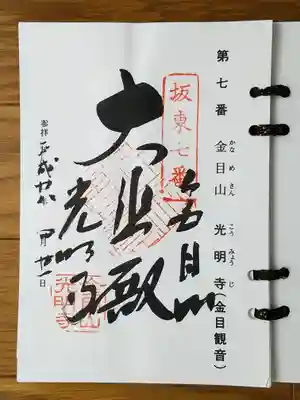 第七番 金目山 光明寺(金目観音)
かなめさん こうみょうじ
坂東七番
金目山
大悲殿
光明寺
奉拝 平成 年 月 日
光明寺